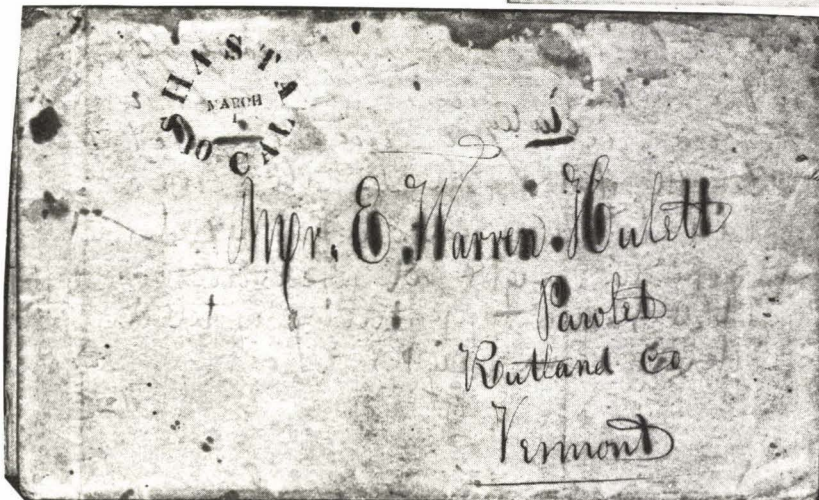 SHASTA
MARCH
CAL
Mr. E. Warren. Hulett
Pawlet
Rutland Co
Vermont